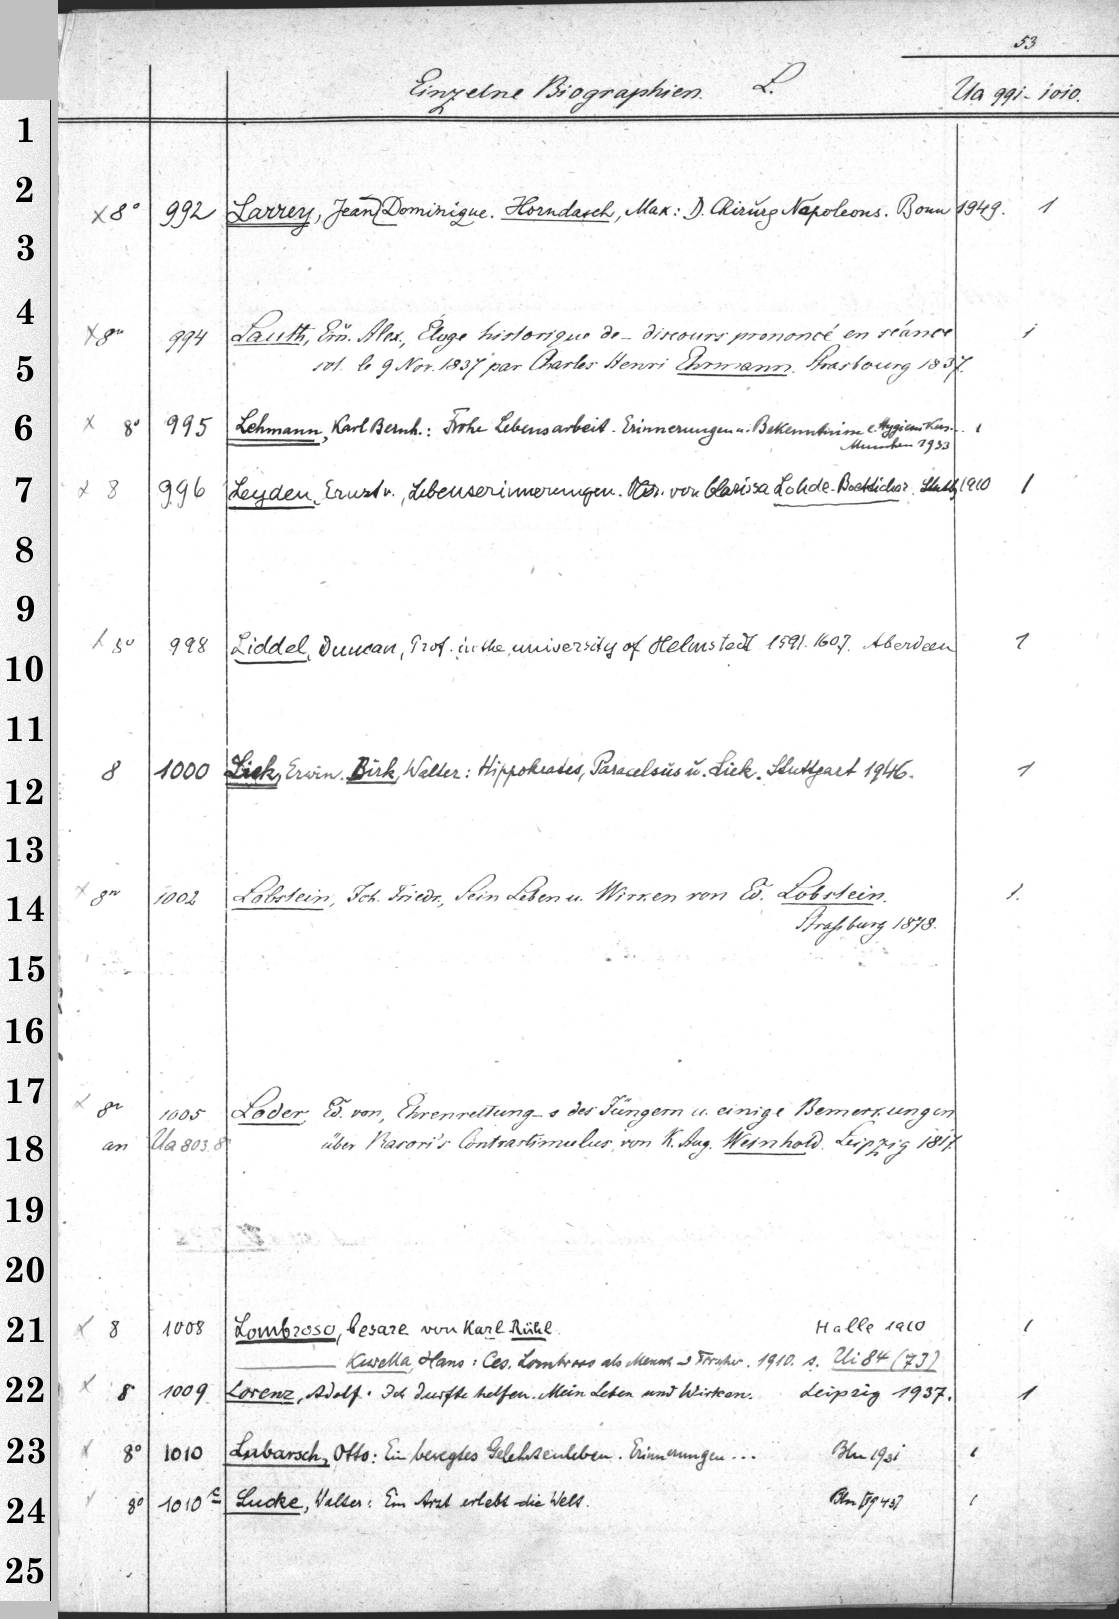 53
Einzelne Biographien. L. Ua 991-1010.
1
2
x 8° 992 Larrey, Jean Dominique. Horndasch, Max: D. Chirurg Napoleons. Bonn 1949. 1
3
4
x 8° 994 Lauth, Ern. Alex., Éloge historique de - discours prononcé en séance 1
5
le 9 Nov. 1837 par Charles Henri Ehrmann. Strasbourg 1837.
6
x 8° 995 Lehmann, Karl Bernh.: Frohe Lebensarbeit. Erinnerungen u. Bekenntnisse e. Hygienikers... 1
München 1933
7
x 8 996 Leyden, Ernst v., Lebenserinnerungen. Hrsg. von Clarissa Lohde-Boetticher. Stuttg 1910 1
8
9
x 8° 998 Liddel, Duncan, Prof. in the university of Helmstedt 1591-1607. Aberdeen 1
10
11
8 1000 Liek, Erwin. Birk, Walter: Hippokrates, Paracelsus u. Liek. Stuttgart 1946. 1
12
13
x 8° 1002 Lobstein, Joh. Friedr., Sein Leben u. Wirken von Ed. Lobstein. 1.
14
Straßburg 1878.
15
16
17
x 8° 1005 Loder, Ed. von, Ehrenrettung - s des Jüngern u. einige Bemerkungen
18
an Ua 803.8° über Rasori's Contrastimulus von K. Aug. Weinhold. Leipzig 1817.
19
20
21
x 8 1008 Lombroso, Cesare von Karl Rühl. Halle 1910 1
Kurella, Hans: Ces. Lombroso als Mensch u Forscher. 1910. s. Ui 84 (73)
22
x 8 1009 Lorenz, Adolf. Ich durfte helfen. Mein Leben und Wirken. Leipzig 1937. 1
23
x 8° 1010 Lubarsch, Otto: Ein bewegtes Gelehrtenleben. Erinnerungen ... Bln 1931 1
24
8° 1010 Lucke, Walter: Ein Arzt erlebt die Welt. Bln [1943] 1
25